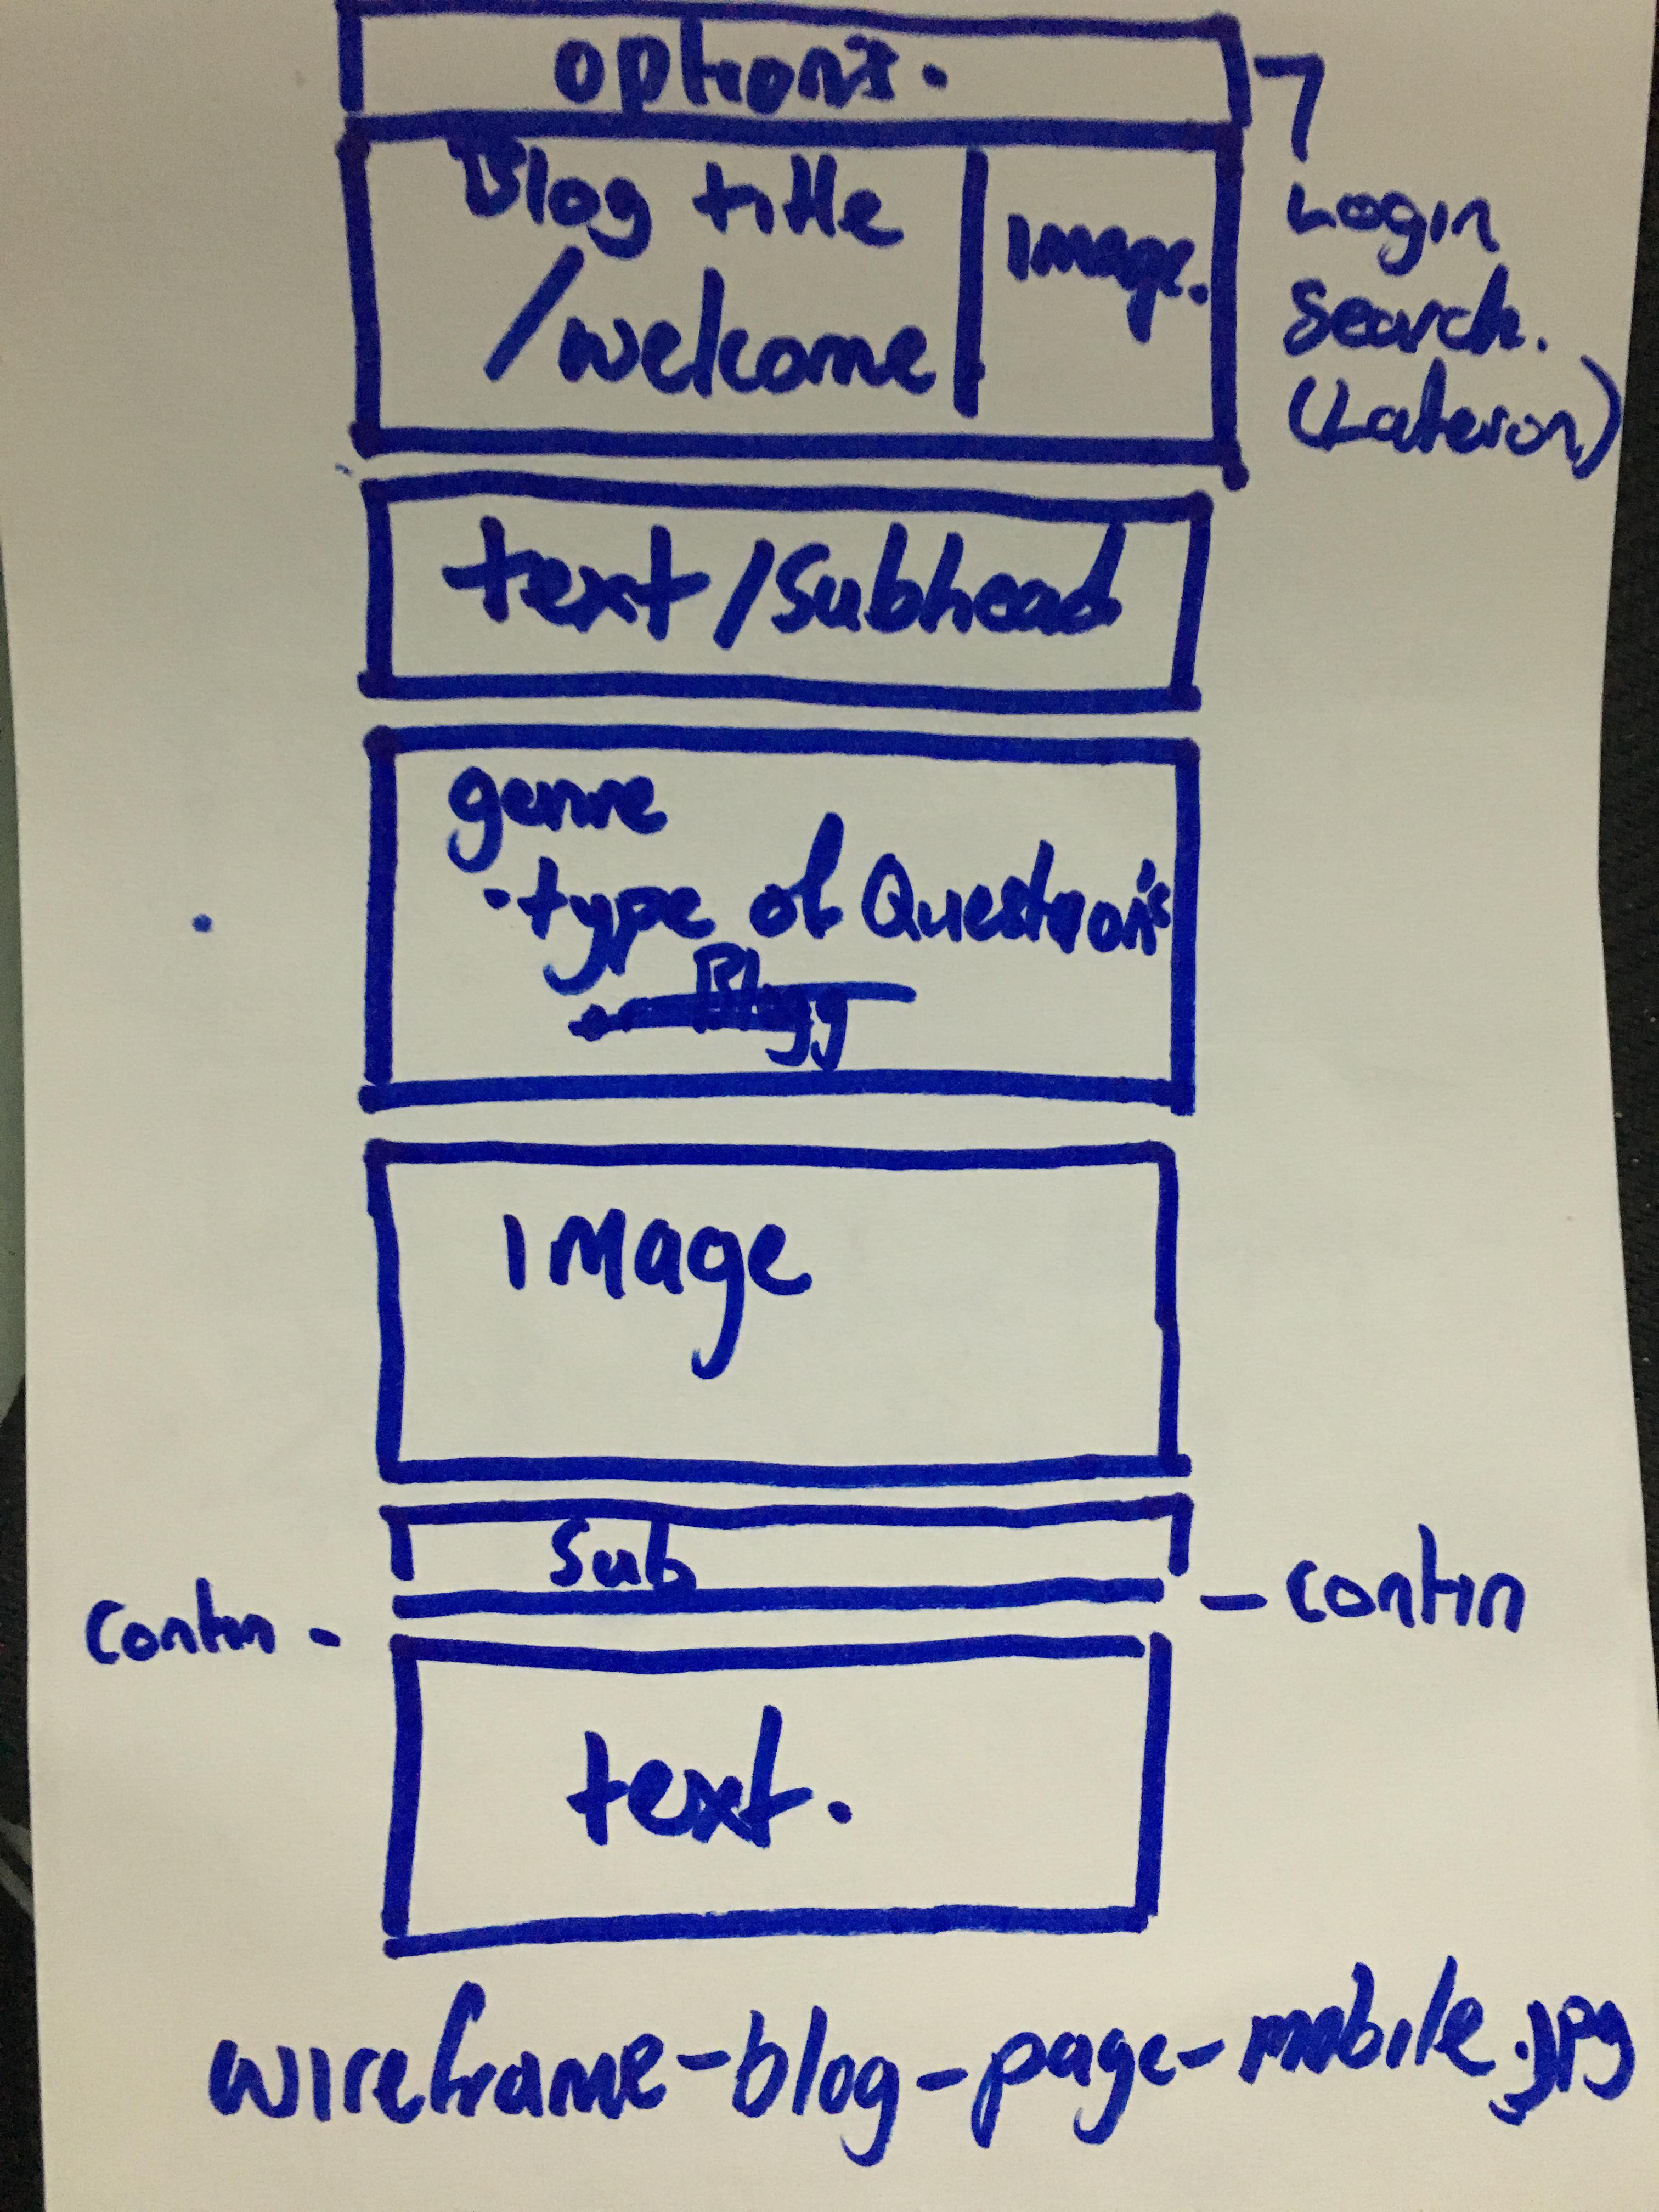 options.
Blog title
/welcome
image.
Login
Search.
(Lateron)
text/Subhead
genre
-type of Question's
Blogg
image
Sub
Contin -
- contin
text.
wireframe-blog-page-mobile.jpg